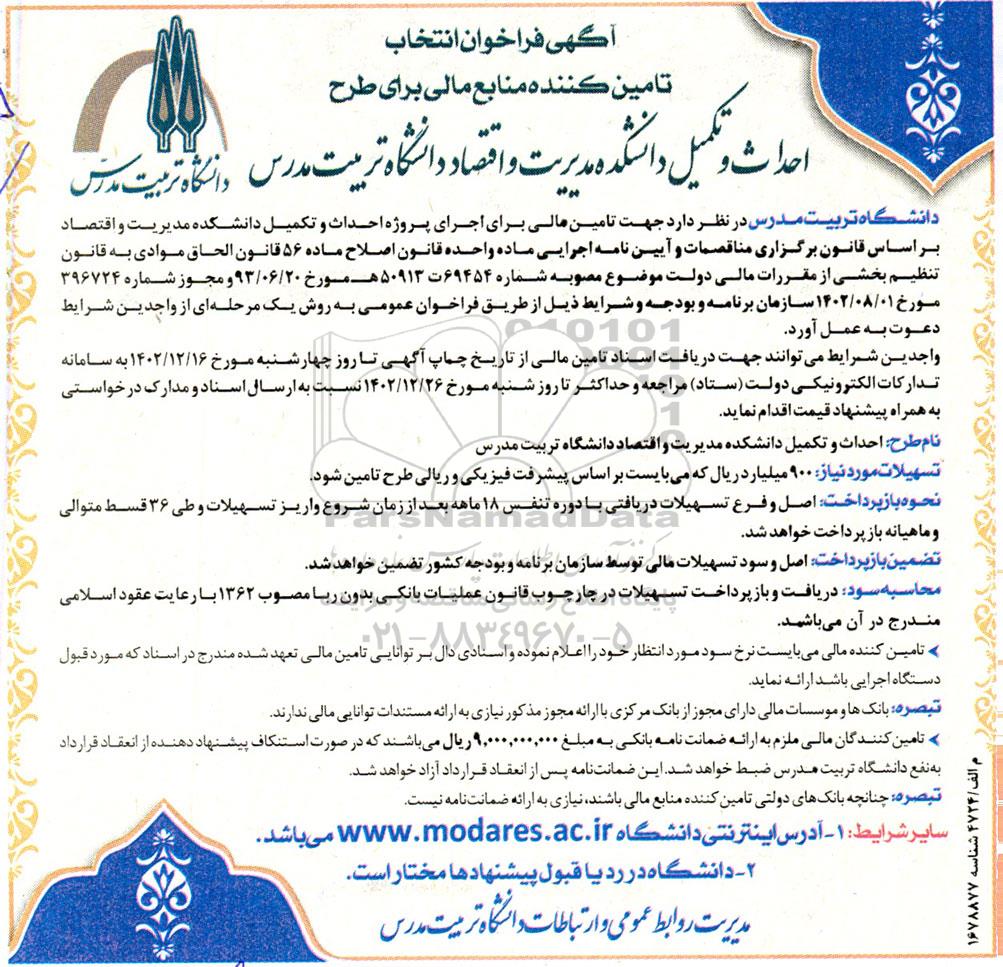 آگهی فراخوان انتخاب
تامین کننده منابع مالی برای طرح
احداث و تکمیل دانشکده مدیریت و اقتصاد دانشگاه تربیت مدرس
دانشگاه تربیت مدرس
دانشگاه تربیت مدرس در نظر دارد جهت تامین مالی برای اجرای پروژه احداث و تکمیل دانشکده مدیریت و اقتصاد
بر اساس قانون برگزاری مناقصات و آیین نامه اجرایی ماده واحده قانون اصلاح ماده ۵۶ قانون الحاق موادی به قانون
تنظیم بخشی از مقررات مالی دولت موضوع مصوبه شماره ۶۹۴۵۴ت ۵۰۹۱۳هـ مورخ ۹۳/۰۶/۲۰ و مجوز شماره ۳۹۶۷۲۴
مورخ ۱۴۰۲/۰۸/۰۱ سازمان برنامه و بودجه و شرایط ذیل از طریق فراخوان عمومی به روش یک مرحله‌ای از واجدین شرایط
دعوت به عمل آورد.
واجدین شرایط می‌توانند جهت دریافت اسناد تامین مالی از تاریخ چاپ آگهی تا روز چهارشنبه مورخ ۱۴۰۲/۱۲/۱۶ به سامانه
تدارکات الکترونیکی دولت (ستاد) مراجعه و حداکثر تا روز شنبه مورخ ۱۴۰۲/۱۲/۲۶ نسبت به ارسال اسناد و مدارک درخواستی
به همراه پیشنهاد قیمت اقدام نماید.
نام طرح: احداث و تکمیل دانشکده مدیریت و اقتصاد دانشگاه تربیت مدرس
تسهیلات مورد نیاز: ۹۰۰ میلیارد ریال که می‌بایست بر اساس پیشرفت فیزیکی و ریالی طرح تامین شود.
نحوه بازپرداخت: اصل و فرع تسهیلات دریافتی با دوره تنفس ۱۸ ماهه بعد از زمان شروع واریز تسهیلات و طی ۳۶ قسط متوالی
و ماهیانه بازپرداخت خواهد شد.
ParsNamadData
تضمین بازپرداخت: اصل و سود تسهیلات مالی توسط سازمان برنامه و بودجه کشور تضمین خواهد شد.
محاسبه سود: دریافت و بازپرداخت تسهیلات در چارچوب قانون عملیات بانکی بدون ربا مصوب ۱۳۶۲ با رعایت عقود اسلامی
مندرج در آن می‌باشد.
۰۲۱-۸۸۳۴۹۶۷۰-۵
تامین کننده مالی می‌بایست نرخ سود مورد انتظار خود را اعلام نموده و اسنادی دال بر توانایی تامین مالی تعهد شده مندرج در اسناد که مورد قبول
دستگاه اجرایی باشد ارائه نماید.
تبصره: بانک ها و موسسات مالی دارای مجوز از بانک مرکزی با ارائه مجوز مذکور نیازی به ارائه مستندات توانایی مالی ندارند.
تامین کنندگان مالی ملزم به ارائه ضمانت نامه بانکی به مبلغ ۹,۰۰۰,۰۰۰,۰۰۰ ریال می‌باشند که در صورت استنکاف پیشنهاد دهنده از انعقاد قرارداد
به نفع دانشگاه تربیت مدرس ضبط خواهد شد. این ضمانت‌نامه پس از انعقاد قرارداد آزاد خواهد شد.
تبصره: چنانچه بانک‌های دولتی تامین کننده منابع مالی باشند، نیازی به ارائه ضمانت‌نامه نیست.
سایر شرایط: ۱- آدرس اینترنتی دانشگاه www.modares.ac.ir می‌باشد.
۲- دانشگاه در رد یا قبول پیشنهادها مختار است.
مدیریت روابط عمومی و ارتباطات دانشگاه تربیت مدرس
م الف/۴۷۲۴ شناسه ۱۶۷۸۸۷۷